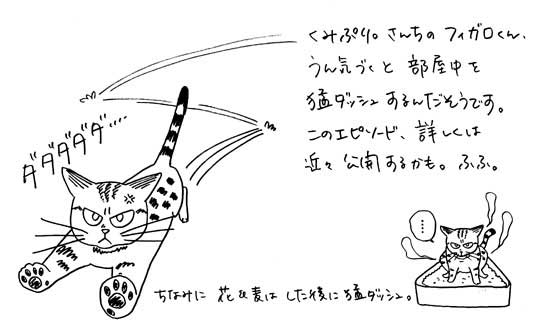 くみぷり。さんちの フィガロくん、
うん気づくと 部屋中を
猛ダッシュするんだそうです。
このエピソード、詳しくは
近々公開するかも。ふふ。
ダダダダダ・・・・
・・・・
ちなみに 花&麦は した後に猛ダッシュ。